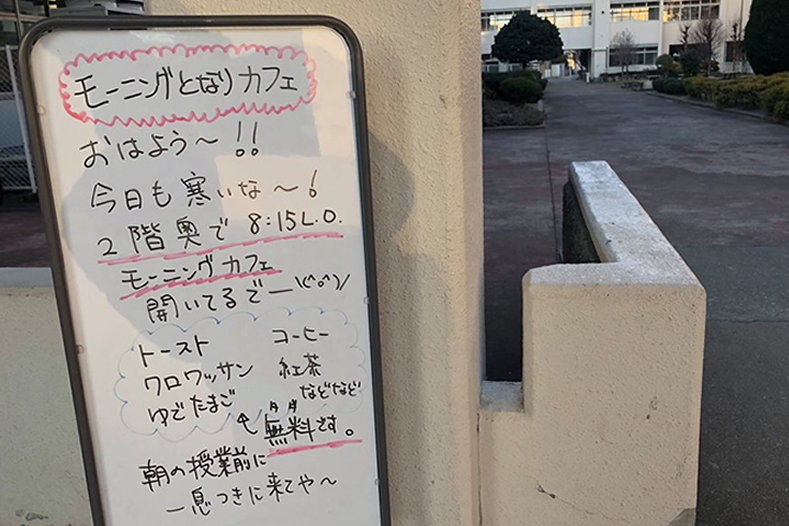 モーニングとなりカフェ
おはよう〜!!
今日も寒いな〜!
2階奥で 8:15L.O.
モーニングカフェ
開いてるでー\(^o^)/
トースト コーヒー
クロワッサン 紅茶
ゆでたまご などなど
↖無料です。
朝の授業前に
一息つきに来てや〜